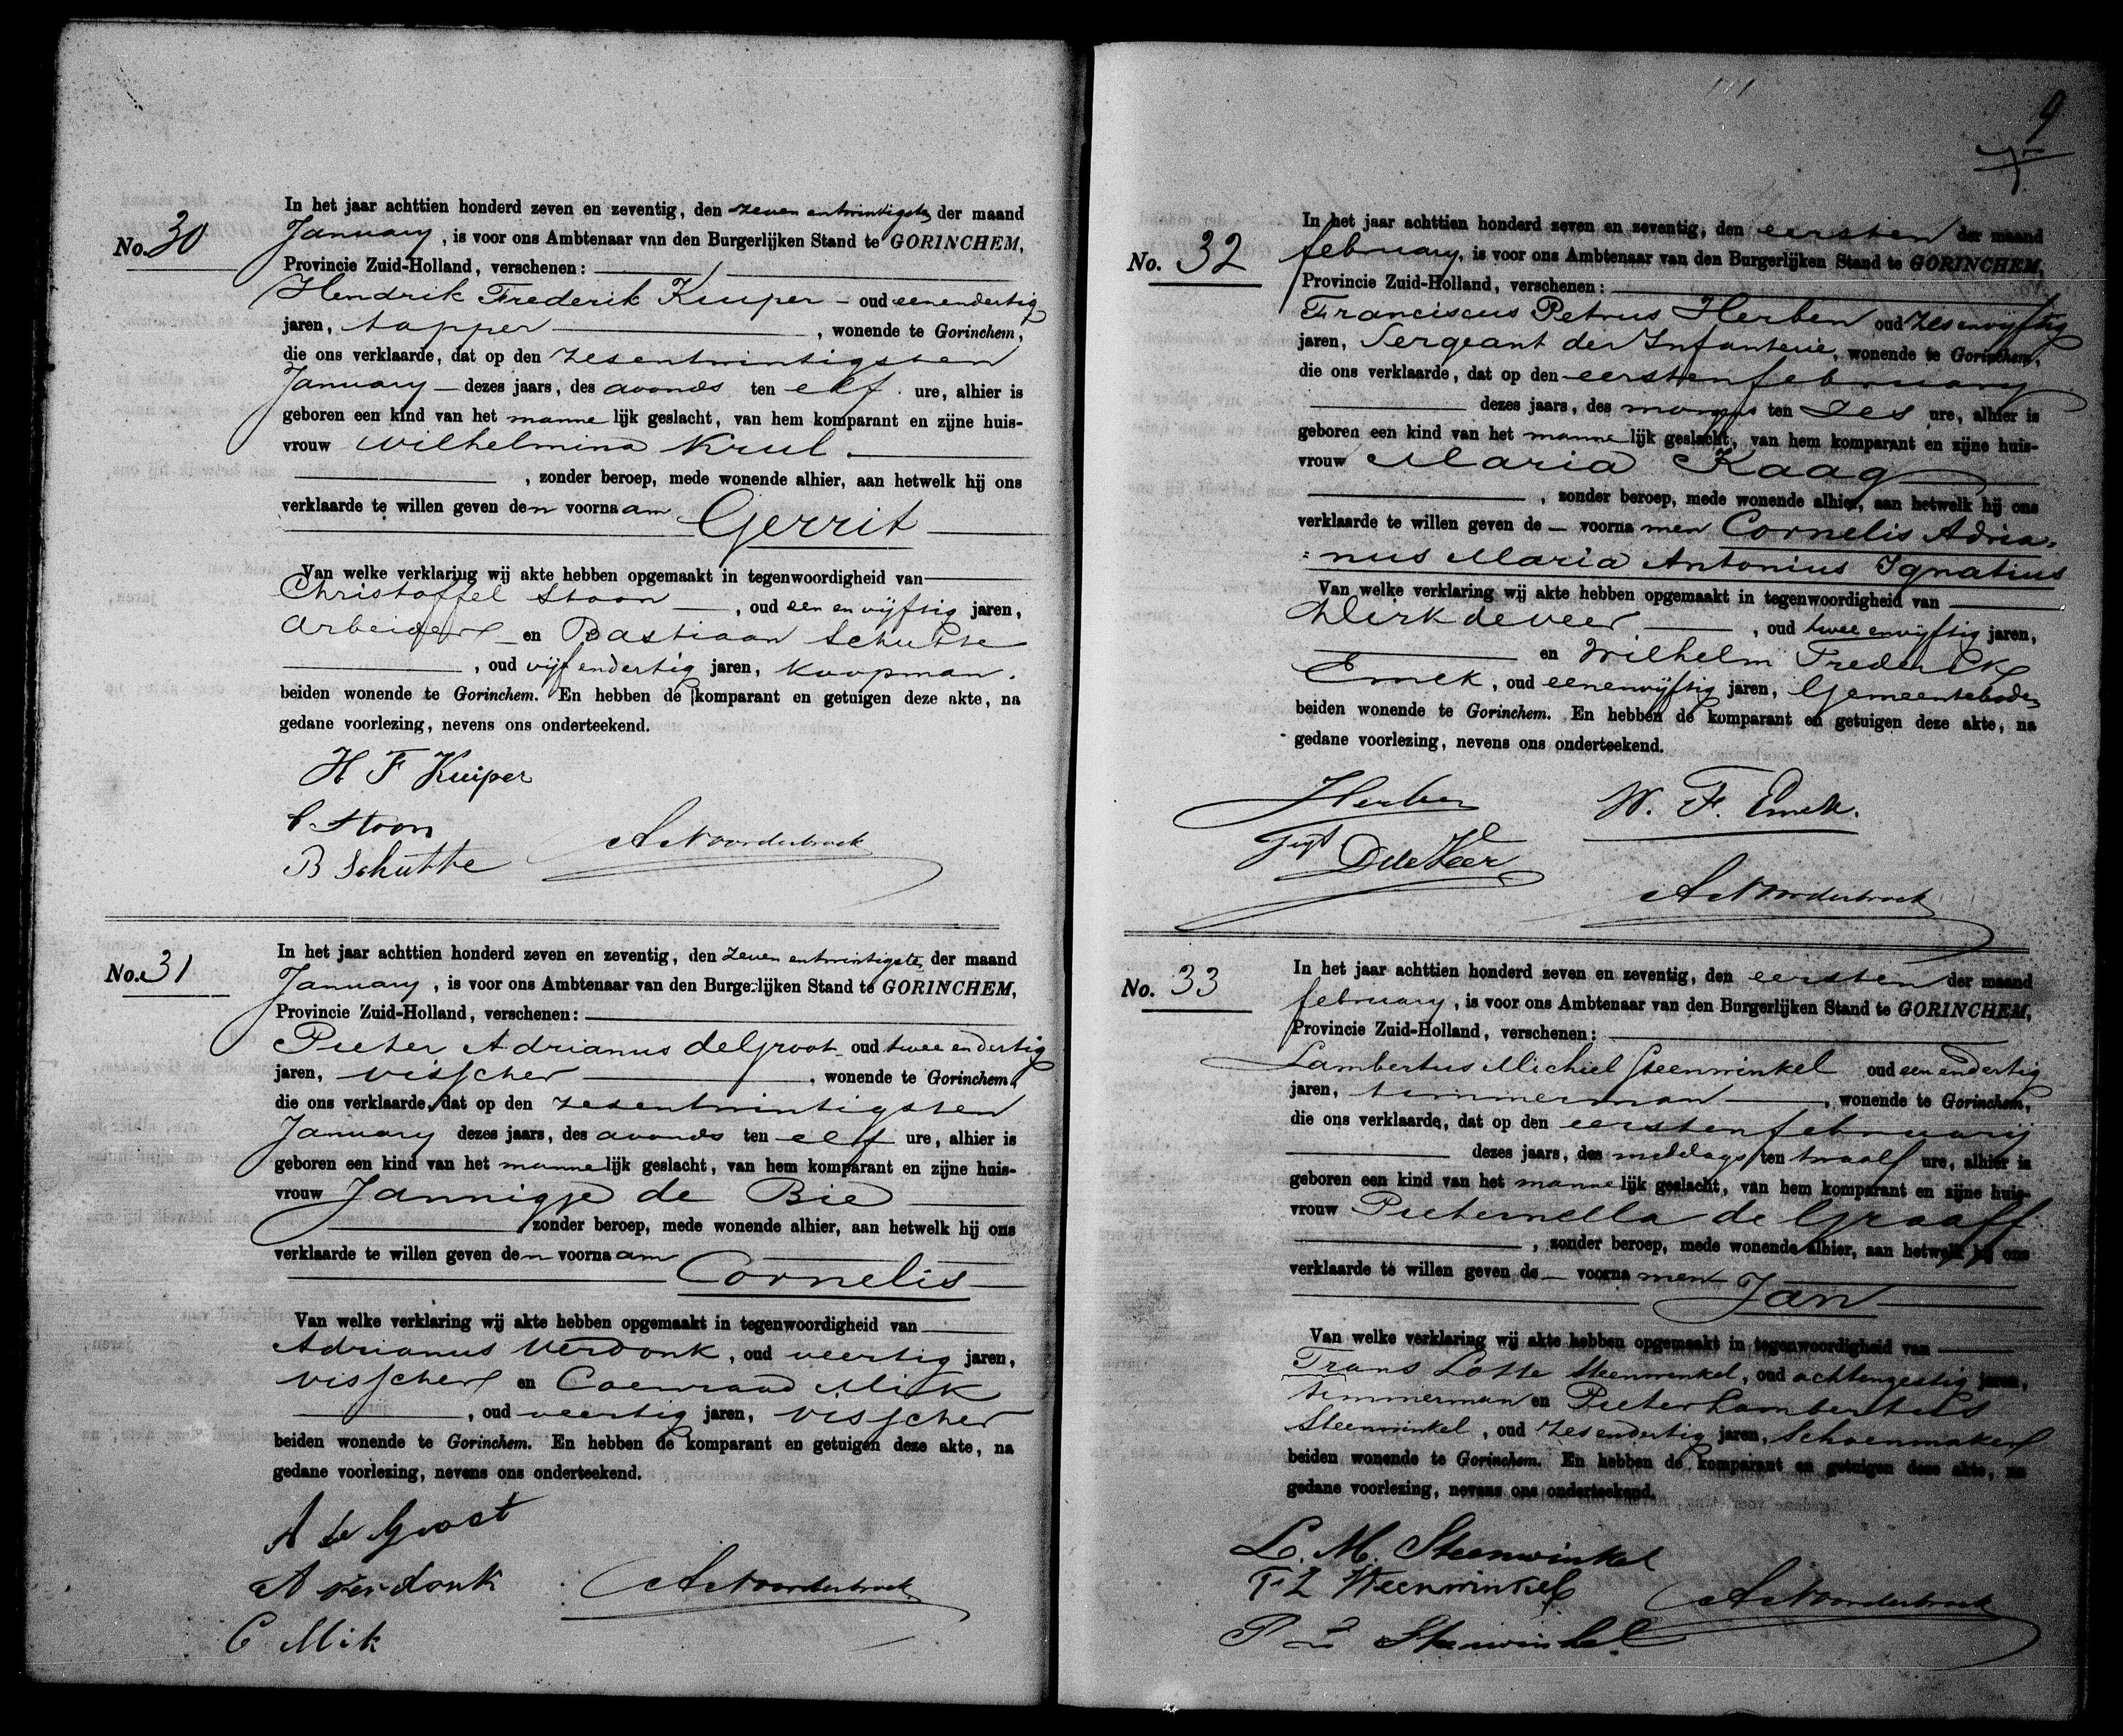 No. 30
In het jaar achttien honderd zeven en zeventig, den zeven entwintigsten der maand
January, is voor ons Ambtenaar van den Burgerlijken Stand te GORINCHEM,
Provincie Zuid-Holland, verschenen:
Hendrik Frederik Kuiper - oud eenendertig
jaren, tapper, wonende te Gorinchem,
die ons verklaarde, dat op den zesentwintigsten
January dezes jaars, des avonds ten elf ure, alhier is
geboren een kind van het mannelijk geslacht, van hem komparant en zijne huis-
vrouw Wilhelmina Krul.
, zonder beroep, mede wonende alhier, aan hetwelk hij ons
verklaarde te willen geven den voornaam
Gerrit
Van welke verklaring wij akte hebben opgemaakt in tegenwoordigheid van
Christoffel Stoon, oud een en vijftig jaren,
arbeider en Bastiaan Schutte
, oud vijfendertig jaren, koopman.
beiden wonende te Gorinchem. En hebben de komparant en getuigen deze akte, na
gedane voorlezing, nevens ons onderteekend.
H F Kuiper
C. Stoon
B Schutte
A Noorderbroek
No. 31
In het jaar achttien honderd zeven en zeventig, den zeven entwintigsten der maand
January, is voor ons Ambtenaar van den Burgerlijken Stand te GORINCHEM,
Provincie Zuid-Holland, verschenen:
Pieter Adrianus de Groot oud twee endertig
jaren, visscher, wonende te Gorinchem,
die ons verklaarde, dat op den zesentwintigsten
January dezes jaars, des avonds ten elf ure, alhier is
geboren een kind van het mannelijk geslacht, van hem komparant en zijne huis-
vrouw Jannigje de Bie
zonder beroep, mede wonende alhier, aan hetwelk hij ons
verklaarde te willen geven den voornaam
Cornelis
Van welke verklaring wij akte hebben opgemaakt in tegenwoordigheid van
Adrianus Verdonk, oud veertig jaren,
visscher en Coenraad Mik
, oud veertig jaren, visscher
beiden wonende te Gorinchem. En hebben de komparant en getuigen deze akte, na
gedane voorlezing, nevens ons onderteekend.
A de Groot
A verdonk
C Mik
A Noorderbroek
9
No. 32
In het jaar achttien honderd zeven en zeventig, den eersten der maand
february, is voor ons Ambtenaar van den Burgerlijken Stand te GORINCHEM,
Provincie Zuid-Holland, verschenen:
Franciscus Petrus Herben oud zesenvijftig
jaren, Sergeant der Infanterie, wonende te Gorinchem,
die ons verklaarde, dat op den eersten february
dezes jaars, des morgens ten zes ure, alhier is
geboren een kind van het mannelijk geslacht, van hem komparant en zijne huis-
vrouw Maria Kaag
, zonder beroep, mede wonende alhier, aan hetwelk hij ons
verklaarde te willen geven de voornamen Cornelis Adria-
=nus Maria Antonius Ignatius
Van welke verklaring wij akte hebben opgemaakt in tegenwoordigheid van
Dirk de veer, oud twee envijftig jaren,
en Wilhelm Frederik
Emck, oud eenenvijftig jaren, Gemeentebode
beiden wonende te Gorinchem. En hebben de komparant en getuigen deze akte, na
gedane voorlezing, nevens ons onderteekend.
Herben
W. F. Emck.
D de Veer
A Noorderbroek
No. 33
In het jaar achttien honderd zeven en zeventig, den eersten der maand
february, is voor ons Ambtenaar van den Burgerlijken Stand te GORINCHEM,
Provincie Zuid-Holland, verschenen:
Lambertus Michiel Steenwinkel oud een endertig
jaren, timmerman, wonende te Gorinchem,
die ons verklaarde, dat op den eersten februarij
dezes jaars, des middags ten twaalf ure, alhier is
geboren een kind van het mannelijk geslacht, van hem komparant en zijne huis-
vrouw Pieternella de Graaff
, zonder beroep, mede wonende alhier, aan hetwelk hij ons
verklaarde te willen geven de voornamen
Jan
Van welke verklaring wij akte hebben opgemaakt in tegenwoordigheid van
Frans Lotte Steenwinkel, oud achtenzestig jaren,
timmerman en Pieter Lambertus
Steenwinkel, oud zesendertig jaren, Schoenmaker
beiden wonende te Gorinchem. En hebben de komparant en getuigen deze akte, na
gedane voorlezing, nevens ons onderteekend.
L. M. Steenwinkel
F L Steenwinkel
P L Steenwinkel
A Noorderbroek